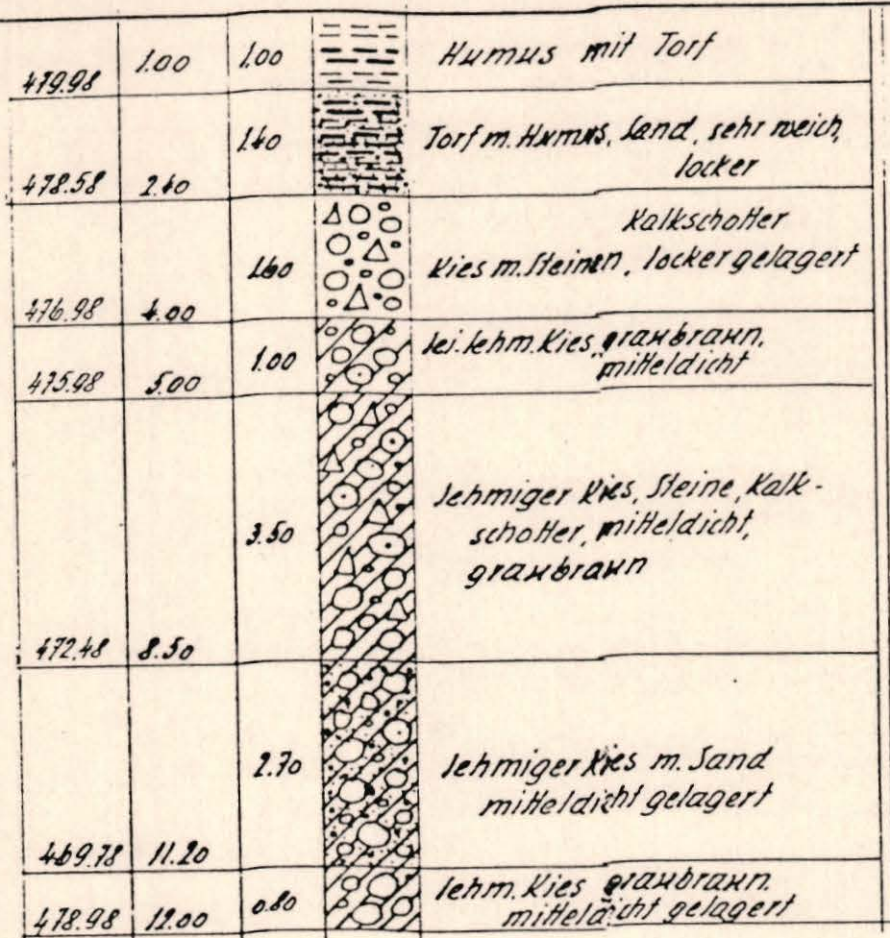 479.98 1.00 1.00 Humus mit Torf
478.58 2.40 1.40 Torf m. Humus, Sand, sehr weich,
locker
Kalkschotter
476.98 4.00 1.60 Kies m. Steinen, locker gelagert
475.98 5.00 1.00 lei. lehm. Kies, graubraun,
mitteldicht
472.48 8.50 3.50 lehmiger Kies, Steine, Kalk-
schotter, mitteldicht,
graubraun
469.78 11.20 2.70 lehmiger Kies m. Sand
mitteldicht gelagert
478.98 12.00 0.80 lehm. Kies graubraun.
mitteldicht gelagert